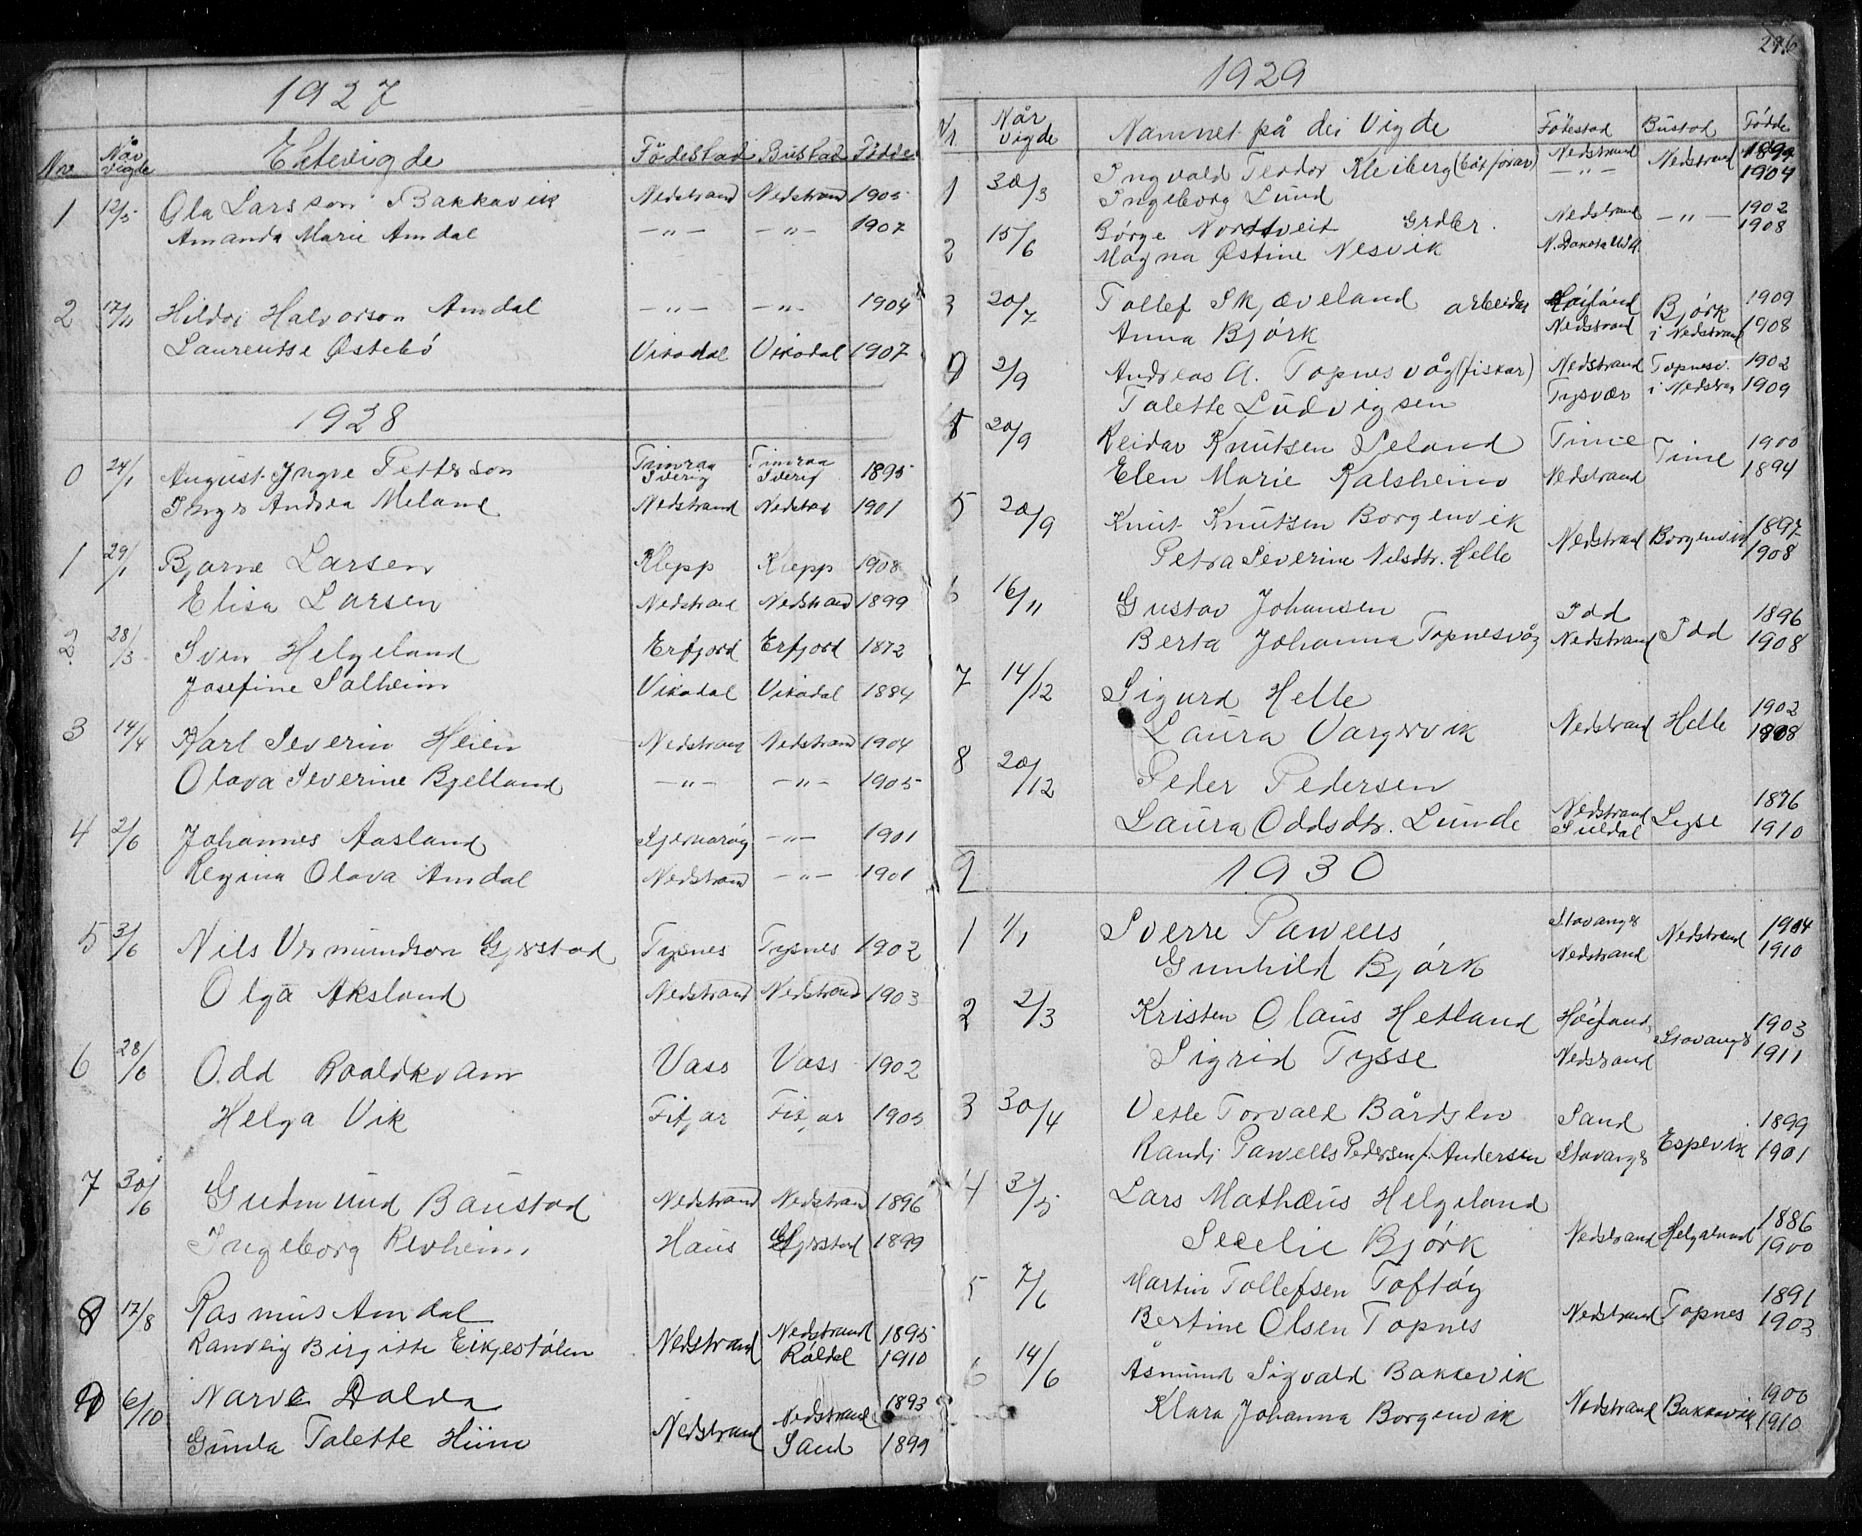 1927
Nr. Når vigde Ektevigde Födestad Bustad Födde
1 12/5 Ola Larsson Bakkavik Nedstrand Nedstrand 1905
Amanda Marie Amdal —"— —"— 1907
2 17/11 Hildor Halvorson Amdal —"— —"— 1904
Laurentse Østebö Vikadal Vikadal 1907
1928
0 24/1 August Yngve Petterson Timraa Sverig Timraa Sverig 1895
Inga Andrea Meland Nedstrand Nedstrand 1901
1 29/1 Bjarne Larsen Klepp Klepp 1908
Elisa Larsen Nedstrand Nedstrand 1899
2 28/3 Sven Helgeland Erfjord Erfjord 1872
Josefine Solheim Vikadal Vikadal 1884
3 14/4 Karl Severin Heien Nedstrand Nedstrand 1904
Olava Severine Bjelland —"— —"— 1905
4 2/6 Johannes Aasland Sjernarøy —"— 1901
Regina Olava Amdal Nedstrand —"— 1901
5 3/6 Nils Vermundson Gjerstad Tysnes Tysnes 1902
Olga Aksland Nedstrand Nedstrand 1903
6 28/6 Odd Roaldkvam Vass Vass 1902
Helga Vik Fitjar Fitjar 1905
7 30/6 Gudmund Baustad Nedstrand Nedstrand 1896
Ingeborg Revheim Haus Gjerstad 1899
8 17/8 Rasmus Amdal Nedstrand Nedstrand 1895
Ranveig Birgitte Eikjestølen Röldal 1910
9 6/10 Narve Dalva Nedstrand Nedstrand 1893
Gunla Talette Hiim Sand 1899
296
1929
Nr. Når vigde Namnet på dei Vigde Födestad Bustad Fødde
1 30/3 Ingvald Teodor Kleiberg (båtførar) Nedstrand Nedstrand 1899
Ingeborg Lund —"— 1904
2 15/6 Børge Nordtveit Grdbr. Nedstrand —"— 1902
Magna Østine Nesvik N. Dakota U.S.A. 1908
3 20/7 Tollef Skjæveland arbeidar Höiland Bjørk 1909
Anna Bjørk Nedstrand i Nedstrand 1908
2/9 Andreas A. Topnesvåg (fiskar) Nedstrand Topnesv. 1902
Talette Ludvigsen Tysvær i Nedstran 1909
20/9 Reidar Knutsen Seland Time Time 1900
Elen Marie Kalsheim Nedstrand 1894
5 20/9 Knut Knutsen Borgenvik Nedstrand Borgenvik 1897
Petra Severine Nilsdtr. Helle 1908
6 16/11 Gustav Johansen Idd Idd 1896
Berta Johanna Topnesvåg Nedstrand 1908
7 14/12 Sigurd Helle Nedstrand Helle 1902
Laura Vargervik 1908
8 20/12 Peder Pedersen Nedstrand Lyse 1876
Laura Oddsdtr. Lunde Suldal 1910
9 1930
1 1/1 Sverre Pawells Stavanger Nedstrand 1904
Gunhild Bjørk Nedstrand 1910
2 2/3 Kristen Olaus Hetland Höiland Stavanger 1903
Sigrid Tysse Nedstrand 1911
3 30/4 Vetle Torvald Bårdslen Sand Espevik 1899
Randi Pawells Pedersen f. Andersen Stavanger 1901
4 3/5 Lars Mathæus Helgeland Nedstrand Helgaland 1886
Secelie Bjørk 1900
5 7/6 Martin Tollefsen Toftøy Nedstrand Topnes 1891
Bertine Olsen Topnes 1903
6 14/6 Åsmund Sigvald Bakkevik Nedstrand Bakkevik 1900
Klara Johanna Borgenvik 1910